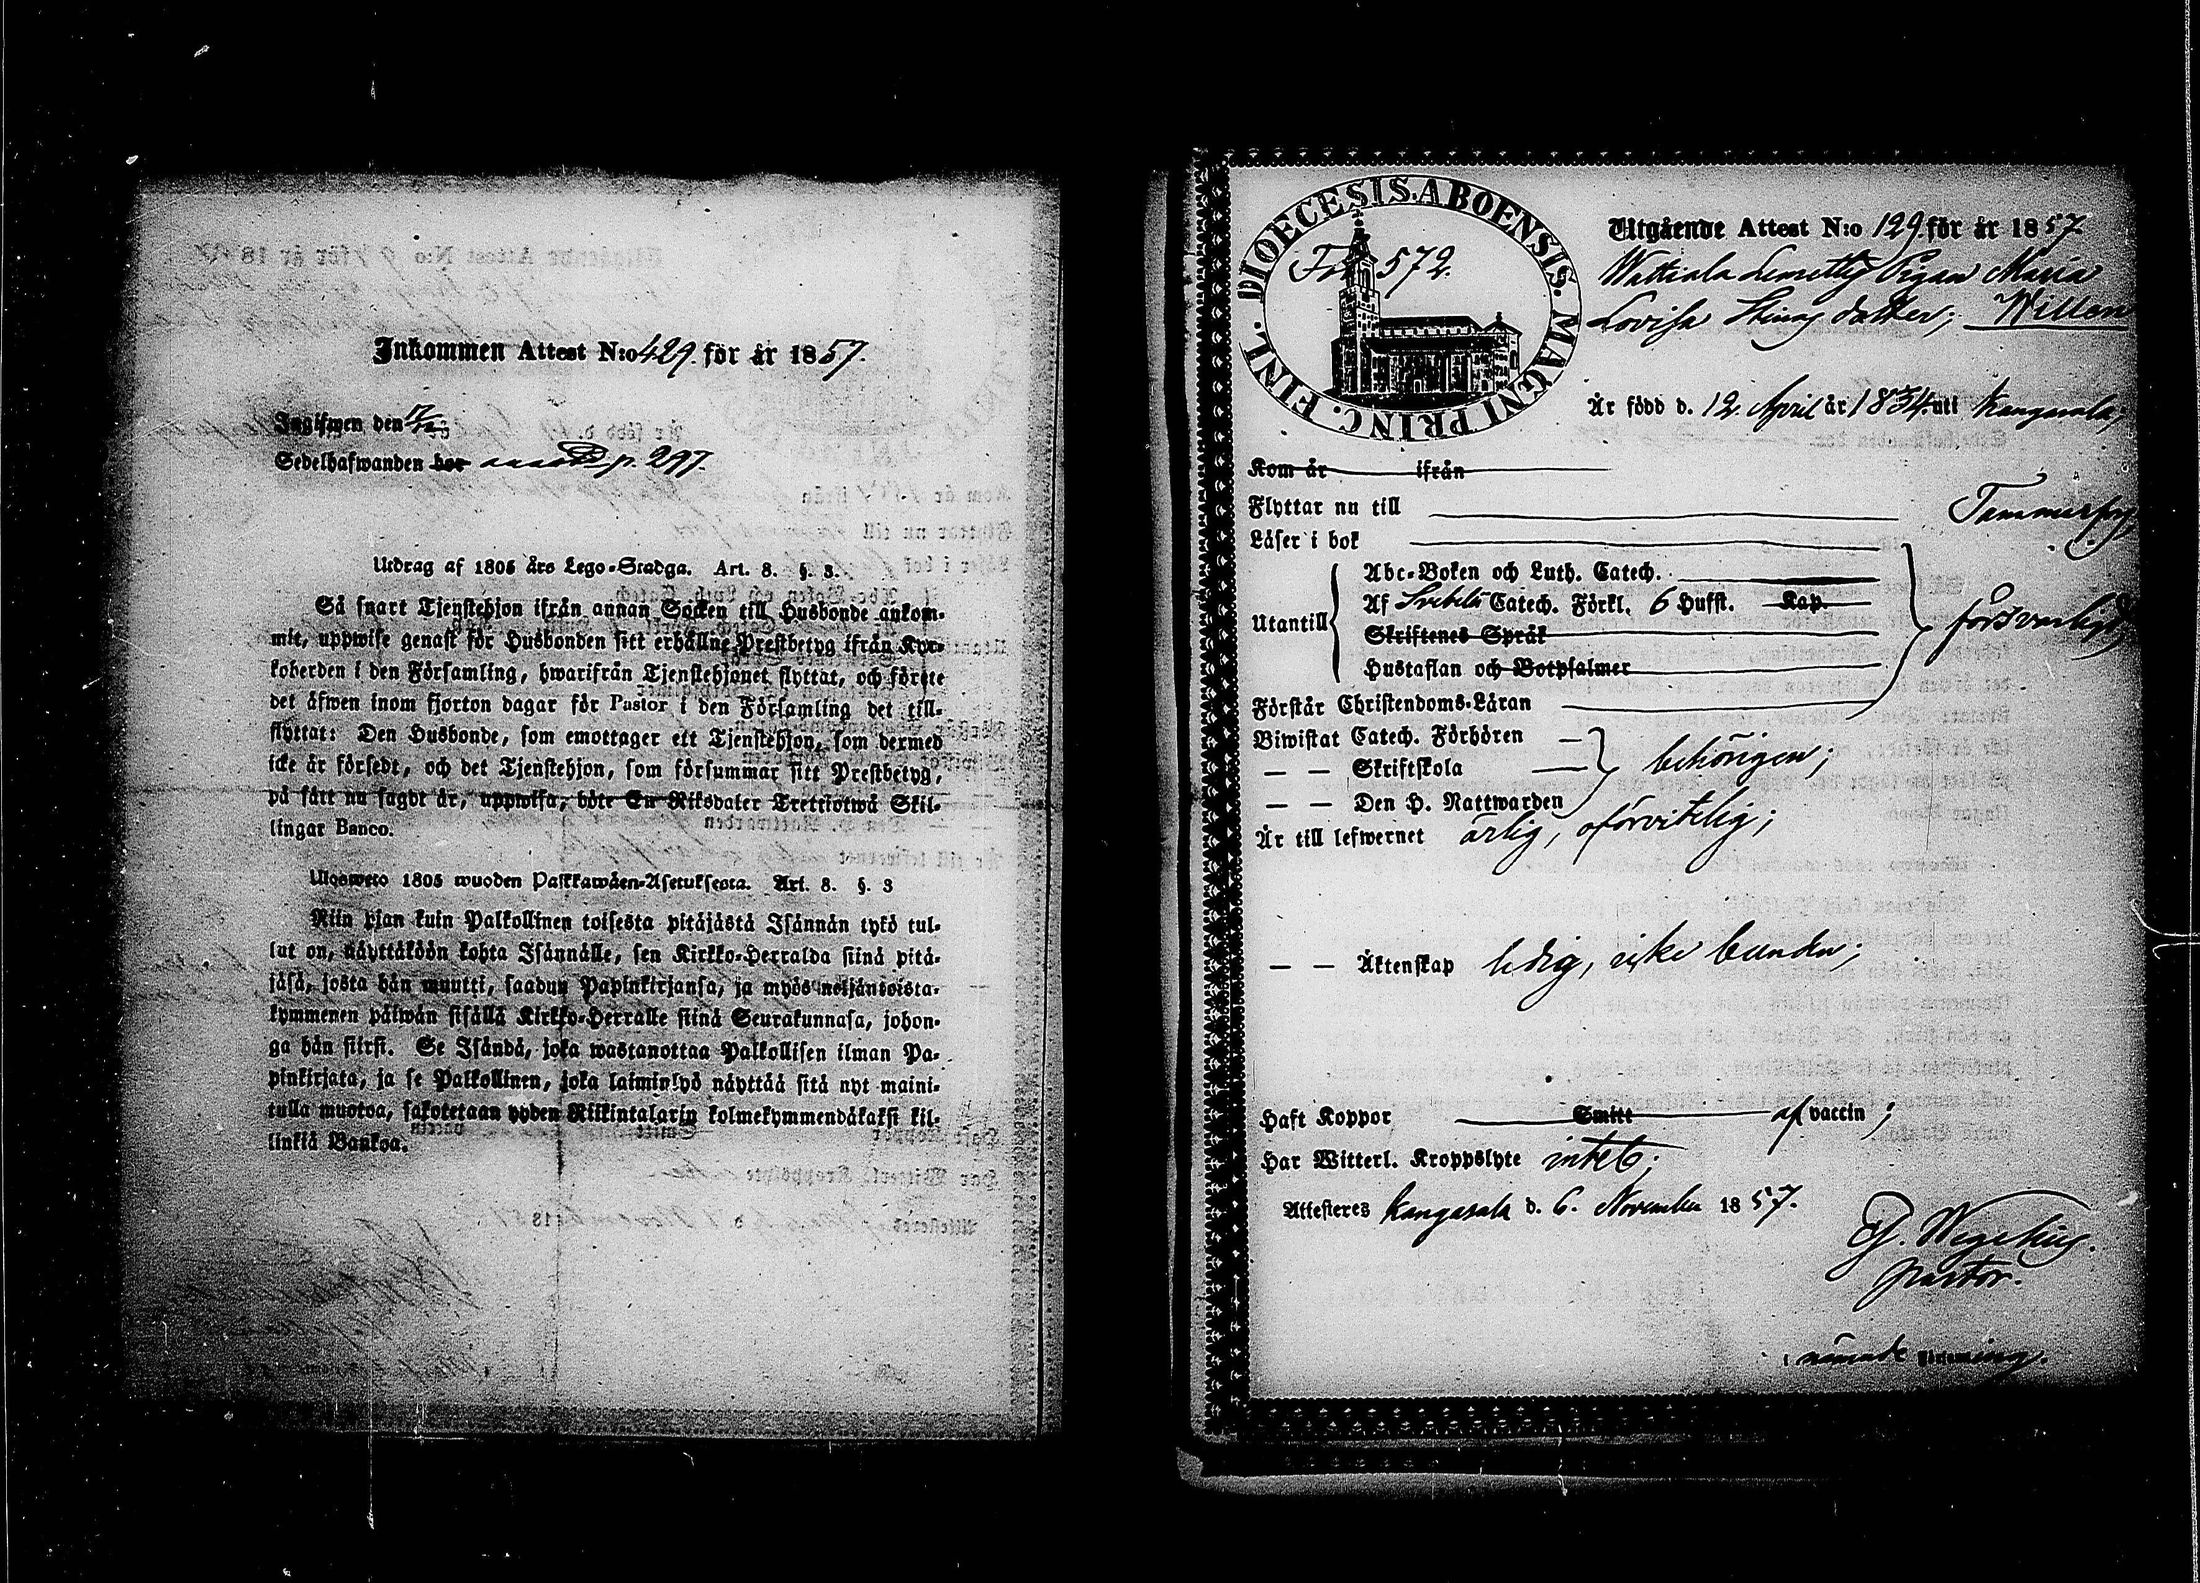 Inkommen Attest N:o 429. för år 1857.
Ingifwen den
Sedelhafwanden bor p. 297.
Utdrag af 1805 års Lego-Stadga. Art. 8. §. 3.
Så snart Tjenstehjon ifrån annan Socken till Husbonde ankom-
mit, uppwise genast för Husbonden sitt erhållne Prestbetyg ifrån Kyr-
koherden i den Församling, hwarifrån Tjenstehjonet flyttat, och förete
det äfwen inom fjorton dagar för Pastor i den Församling det till-
flyttat: Den Husbonde, som emottager ett Tjenstehjon, som dermed
icke är försedt, och det Tjenstehjon, som försummar sitt Prestbetyg,
på sätt nu sagdt är, uppwisa, böte En Riksdaler Trettiotwå Skil-
lingar Banco.
Ulosweto 1805 wuoden Palkkawäen-Asetuksesta. Art. 8. §. 3
Niin pian kuin Palkollinen toisesta pitäjästä Isännän tykö tul-
lut on, näyttäköön kohta Isännälle, sen Kirkko-Herralda siinä pitä-
jäsä, josta hän muutti, saadun Papinkirjansa, ja myös neljäntoista-
kymmenen päiwän sisällä Kirkko-Herralle siinä Seurakunnasa, johon-
ga hän siirsi. Se Isändä, joka wastanottaa Palkollisen ilman Pa-
pinkirjata, ja se Palkollinen, joka laiminlyö näyttää sitä nyt maini-
tulla muotoa, sakotetaan yhden Riikintalarin kolmekymmendäkaksi kil-
linkiä Bankoa.
DIOECESIS. ABOENSIS. MAGNI PRINC. FINL.
Fol 572.
Utgående Attest N:o 129. för år 1857.
Wattiala Simettly Pigan Maria
Lovisa Stinas dotter; Willen
Är född d. 12 April år 1834. uti Kangasala,
Kom år ifrån
Flyttar nu till Tammerfors
Läser i bok
Utantill
Abc-Boken och Luth. Catech.
Af Svebeli Catech. Förkl. 6 Hufst. Kap.
Skriftenes Språk
Hustaflan och Botpsalmer
försvarligt
Förstår Christendoms-Läran
Biwistat Catech. Förhören
— — Skriftskola behörigen;
— — Den H. Nattwarden
Är till lefwernet ärlig, oförvitelig;
— — Äktenskap ledig, icke bunden;
Haft Koppor Smitt af vaccin;
Har Witterl. Kroppslyte intet;
Attesteres Kangasala d. 6. November 1857.
Wegelius.
pastor.
i nämnde Församling.